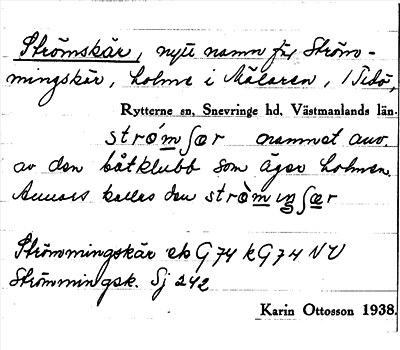 Strömskär, nytt namn för Ström-
mingskär, holme i Mälaren, 1 Tidö,
Rytterne sn, Snevringe hd, Västmanlands län.
strö̀mʃær namnet anv.
av den båtklubb som äger holmen.
Annars kallas den strö̀miŋʃær
Strömmingskär ek G 74 k G 74 NV
Strömmingsk. Sj 242
Karin Ottosson 1938.